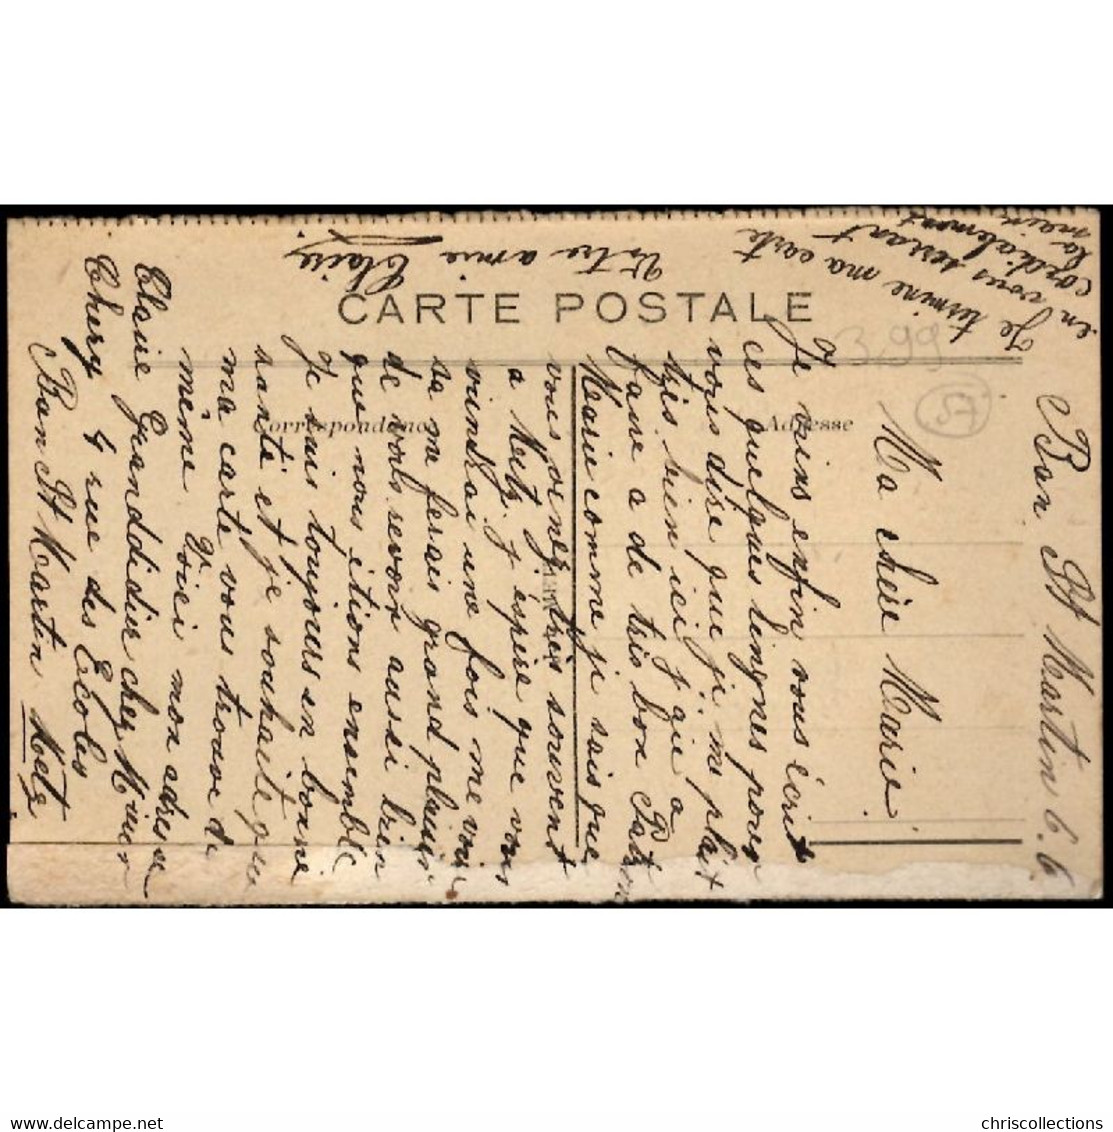 CARTE POSTALE
Correspondance
Adresse
399
57
Ban St Martin 6.6
Ma chère Marie
Je viens enfin vous écrire
ces quelques lingnes pour
vous dise que je me plait
très bien ici j'ai a
faire a de très bon Patron
Marie comme je sais que
vous venez très souvent
a Metz. J'éspère que vous
viendrai une fois me voir
sa me ferais grand plaisir
de vous revoir aussi bien
que nous étions ensemble
Je suis toujours en bonne
santé et je souhaite que
ma carte vous trouve de
même Voici mon adresse
Claire Granddidier chez M
Thiery 4 rue des Ecoles
Ban St Martin Metz
Je termine ma carte
en vous serrant
cordialement
la main
Votre amie Claire
delcampe.net
chriscollections